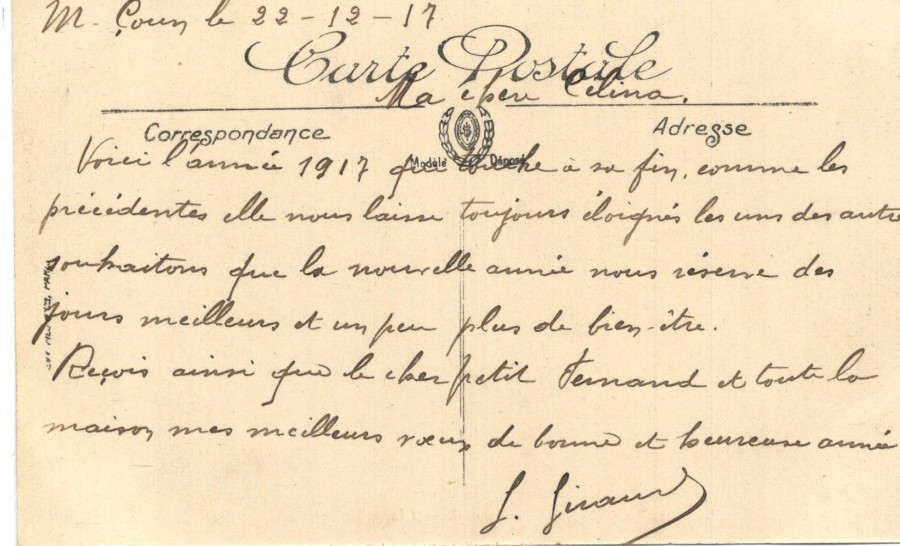 M. Çoun le 22-12-17
Carte Postale
Ma chere Celina.
Correspondance
Adresse
Modèle Déposé
Voici l'année 1917 qui touche à sa fin, comme les
précédentes elle nous laisse toujours éloignés les uns des autre
souhaitons que la nouvelle année nous réserve des
jours meilleurs et un peu plus de bien-être.
Reçois ainsi que le cher petit Fernand et toute la
maison mes meilleurs vœux de bonne et heureuse année